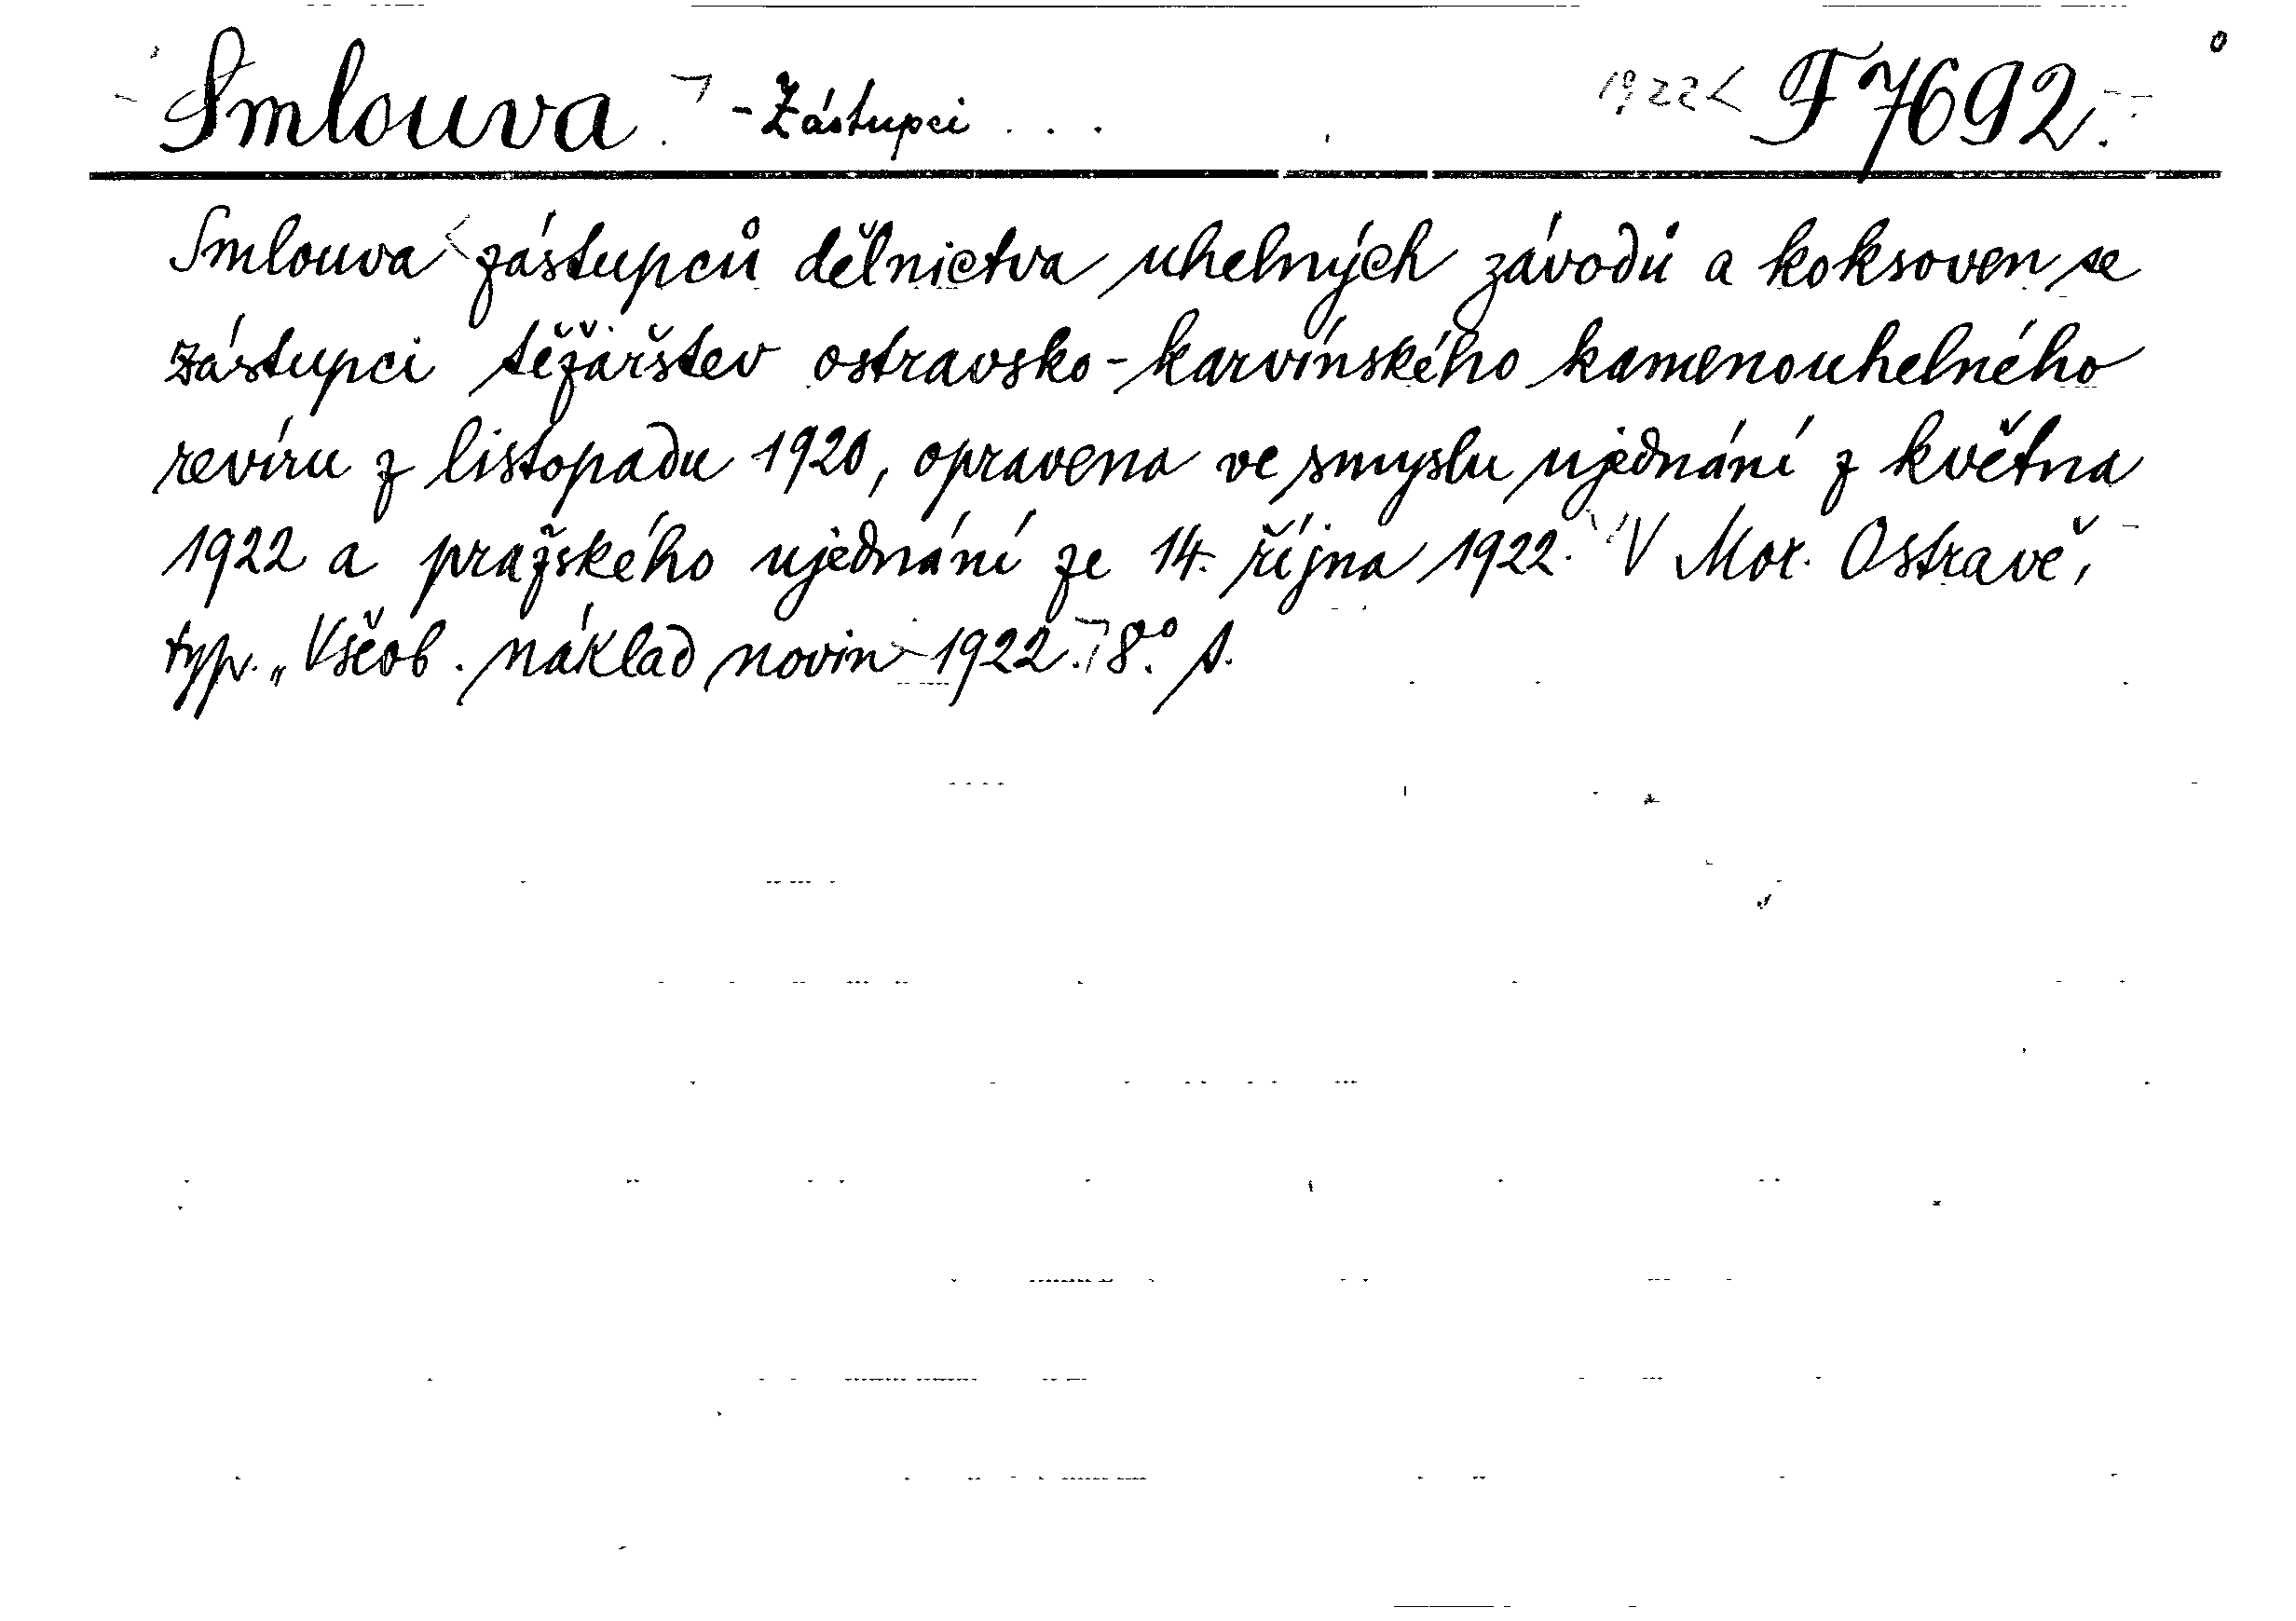 Smlouva. - Zástupci . . . 1922 F 7692.
Smlouva zástupců dělnictva uhelných závodů a koksoven se
zástupci těžařstev ostravsko-karvínského kamenouhelného
revíru z listopadu 1920, opravena ve smyslu ujednání z května
1922 a pražského ujednání ze 14. října 1922. V Mor. Ostravě,
typ. „Všeob. náklad novin 1922. 8.° s.